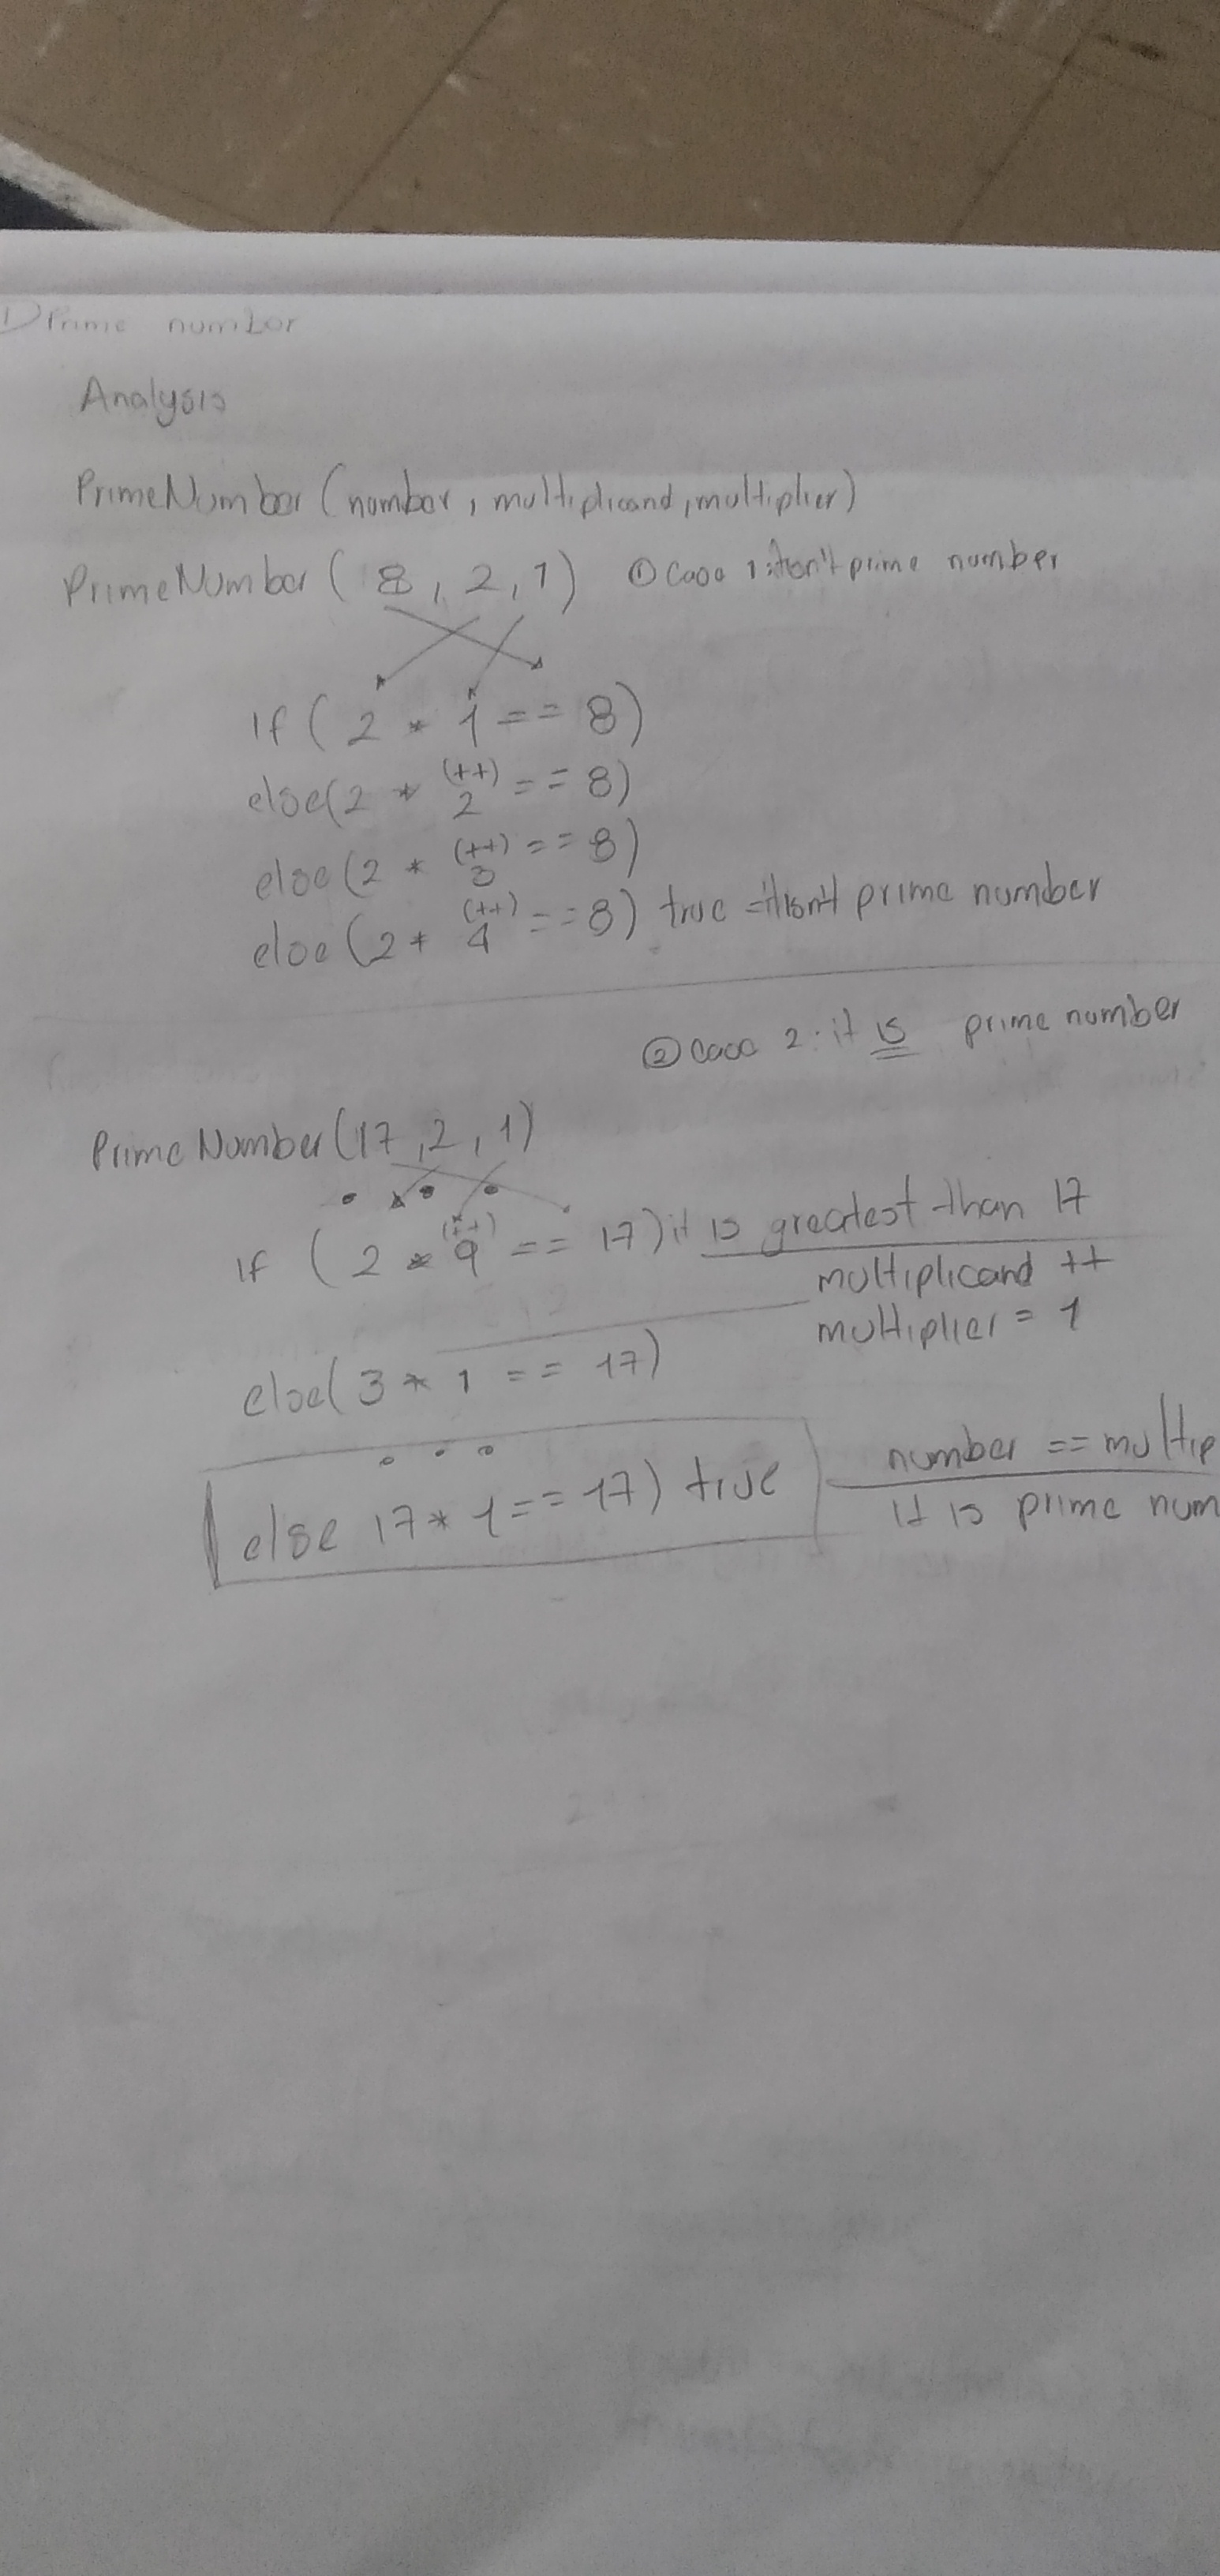 1) Prime number
Analysis
PrimeNumber (number, multiplicand, multiplier)
PrimeNumber ( 8, 2, 1) ① Case 1: prime number
If ( 2 * 1 == 8)
else(2 * (++) 2 == 8)
else (2 * (++) 3 == 8)
else (2 * (++) 4 == 8) true prime number
② case 2: it is prime number
Prime Number (17, 2, 1)
If ( 2 * (++) 9 == 17) it is greatest than 17
multiplicand ++
multiplier = 1
else( 3 * 1 == 17)
else 17 * 1 == 17) true
number == multip
it is prime num